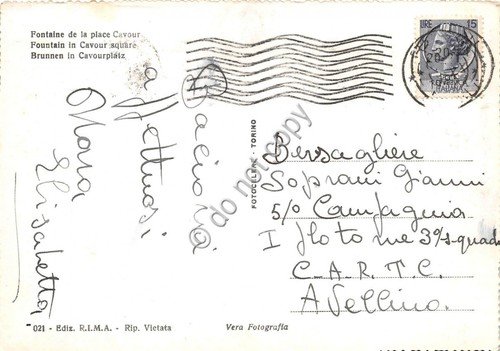 Fontaine de la place Cavour
Fountain in Cavour square
Brunnen in Cavourplätz
LIRE 15
Bacioni
affettuosi
Mara
Elisabetta
FOTOCELERE - TORINO
Bersagliere
Soprani Gianni
5/o Compagnia
I Plotone 3ª squad
C.A.R.T.C.
Avellino.
021 - Ediz. R.I.M.A. - Rip. Vietata
Vera Fotografia
do not copy